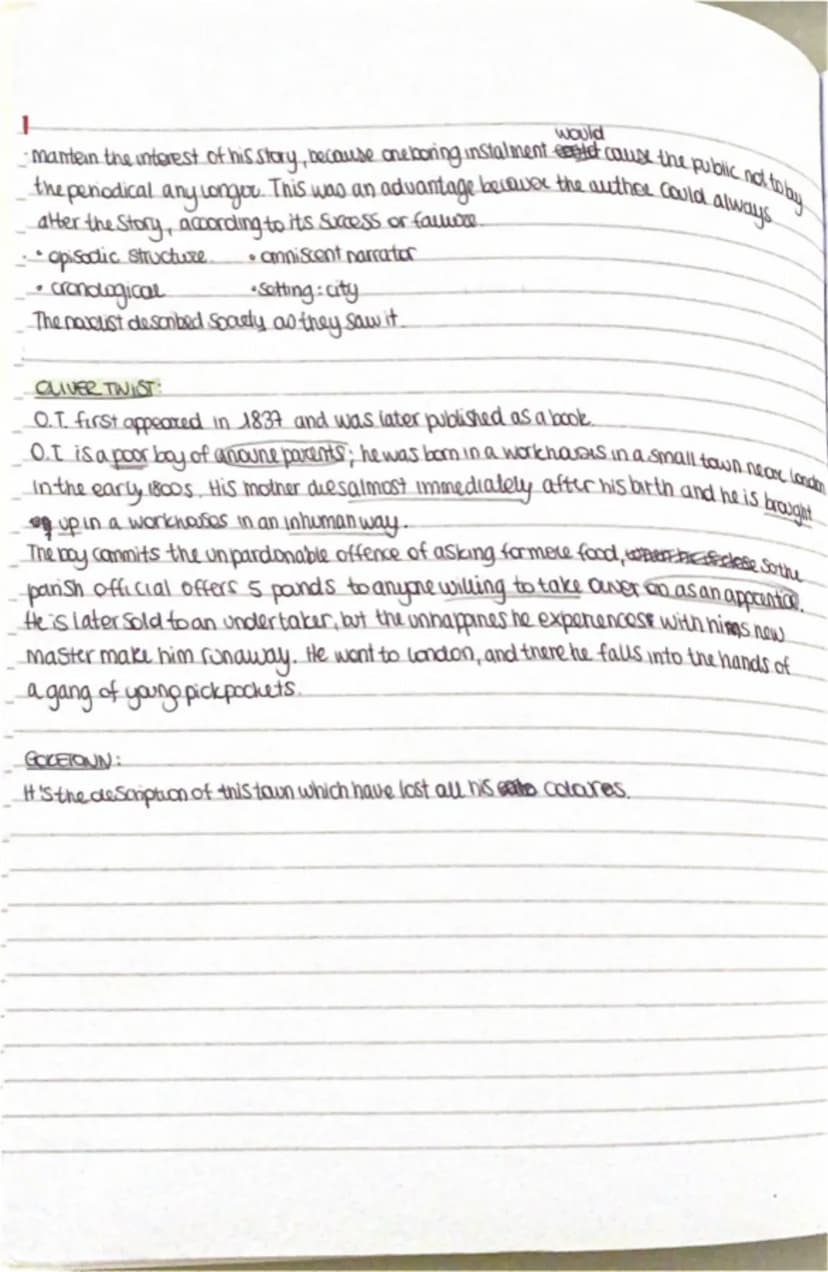 mantein the interest of his story, because one boring instalment would cause the public not to by
the periodical any longer. This was an advantage because the author could always
alter the story, according to its success or failure.
• episodic structure • omniscent narrator
• cronological • setting: city
The novelist described society as they saw it.
OLIVER TWIST:
O.T. first appeared in 1837 and was later published as a book.
O.T is a poor boy of parents; he was born in a workhouses in a small town near London
in the early 1800s. His mother dies almost immediately after his birth and he is brought
up in a workhouses in an inhuman way.
The boy commits the unpardonable offence of asking for more food, so the
parish official offers 5 pounds to anyone willing to take Oliver on as an apprentice.
He is later sold to an undertaker, but the unhappines he experiences with his new
master make him runaway. He went to London, and there he falls into the hands of
a gang of young pickpockets.
COKETOWN:
It's the description of this town which have lost all his colores.